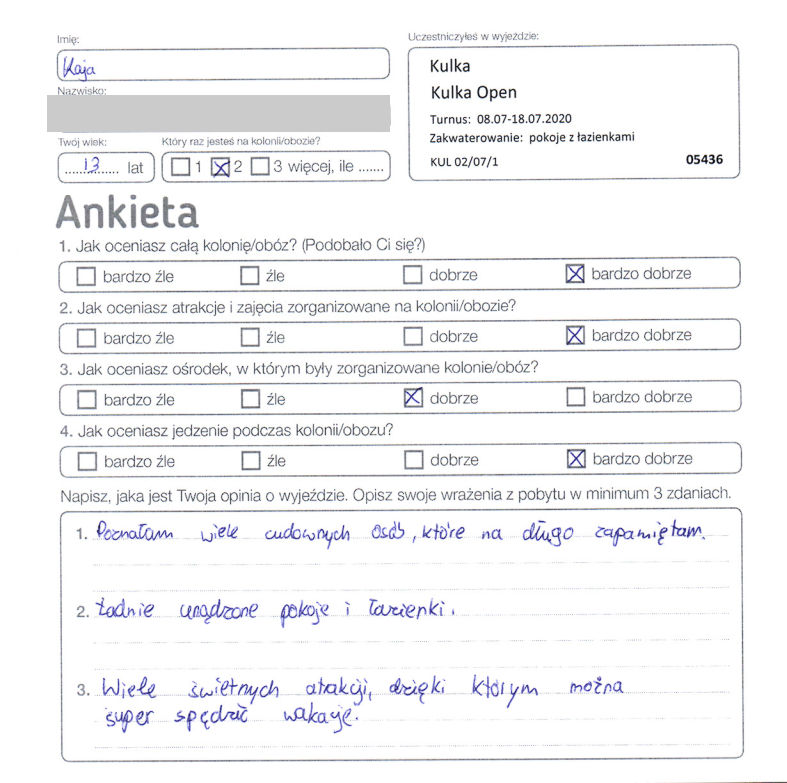 Imię:
Kaja
Nazwisko:
Twój wiek:
13 lat
Który raz jesteś na kolonii/obozie?
1 2 3 więcej, ile .......
Uczestniczyłeś w wyjeździe:
Kulka
Kulka Open
Turnus: 08.07-18.07.2020
Zakwaterowanie: pokoje z łazienkami
KUL 02/07/1 05436
Ankieta
1. Jak oceniasz całą kolonię/obóz? (Podobało Ci się?)
bardzo źle źle dobrze bardzo dobrze
2. Jak oceniasz atrakcje i zajęcia zorganizowane na kolonii/obozie?
bardzo źle źle dobrze bardzo dobrze
3. Jak oceniasz ośrodek, w którym były zorganizowane kolonie/obóz?
bardzo źle źle dobrze bardzo dobrze
4. Jak oceniasz jedzenie podczas kolonii/obozu?
bardzo źle źle dobrze bardzo dobrze
Napisz, jaka jest Twoja opinia o wyjeździe. Opisz swoje wrażenia z pobytu w minimum 3 zdaniach.
1. Poznałam wiele cudownych osób, które na długo zapamiętam.
2. Ładnie urządzone pokoje i łazienki.
3. Wiele świetnych atrakcji, dzięki którym można
super spędzić wakacje.